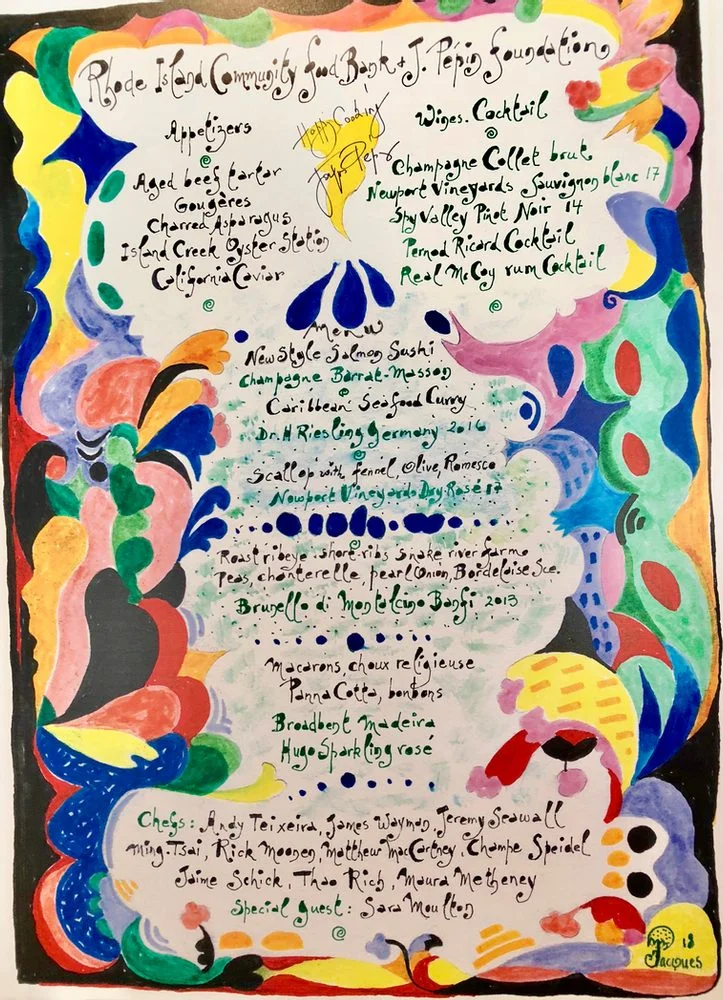 Rhode Island Community Food Bank + J. Pépin foundation
Appetizers
Aged beef tartar
Gougères
Charred Asparagus
Island Creek Oyster Station
California Caviar
Happy Cooking
Jacques Pépin
Wines. Cocktail
Champagne Collet brut
Newport Vineyards Sauvignon blanc 17
Spy Valley Pinot Noir 14
Pernod Ricard Cocktail
Real McCoy rum Cocktail
Menu
New Style Salmon Sushi
Champagne Barrat-Masson
Caribbean Seafood Curry
Dr. H Riesling Germany 2016
Scallop with fennel, Olive, Romesco
Newport Vineyards Dry Rosé 17
Roast ribeye. short ribs snake river farm
Peas, chanterelle, pearl Onion, Bordelaise Sce.
Brunello di Montalcino Banfi 2013
Macarons, choux religieuse
Panna Cotta, bonbons
Broadbent Madeira
Hugo Sparkling rosé
Chefs: Andy Teixeira, James Wayman, Jeremy Seawall
Ming-Tsai, Rick Moonen, Matthew MacCartney, Champe Speidel
Jaime Schick, Thao Rich, Maura Metheney
Special guest: Sara Moulton
18
Jacques